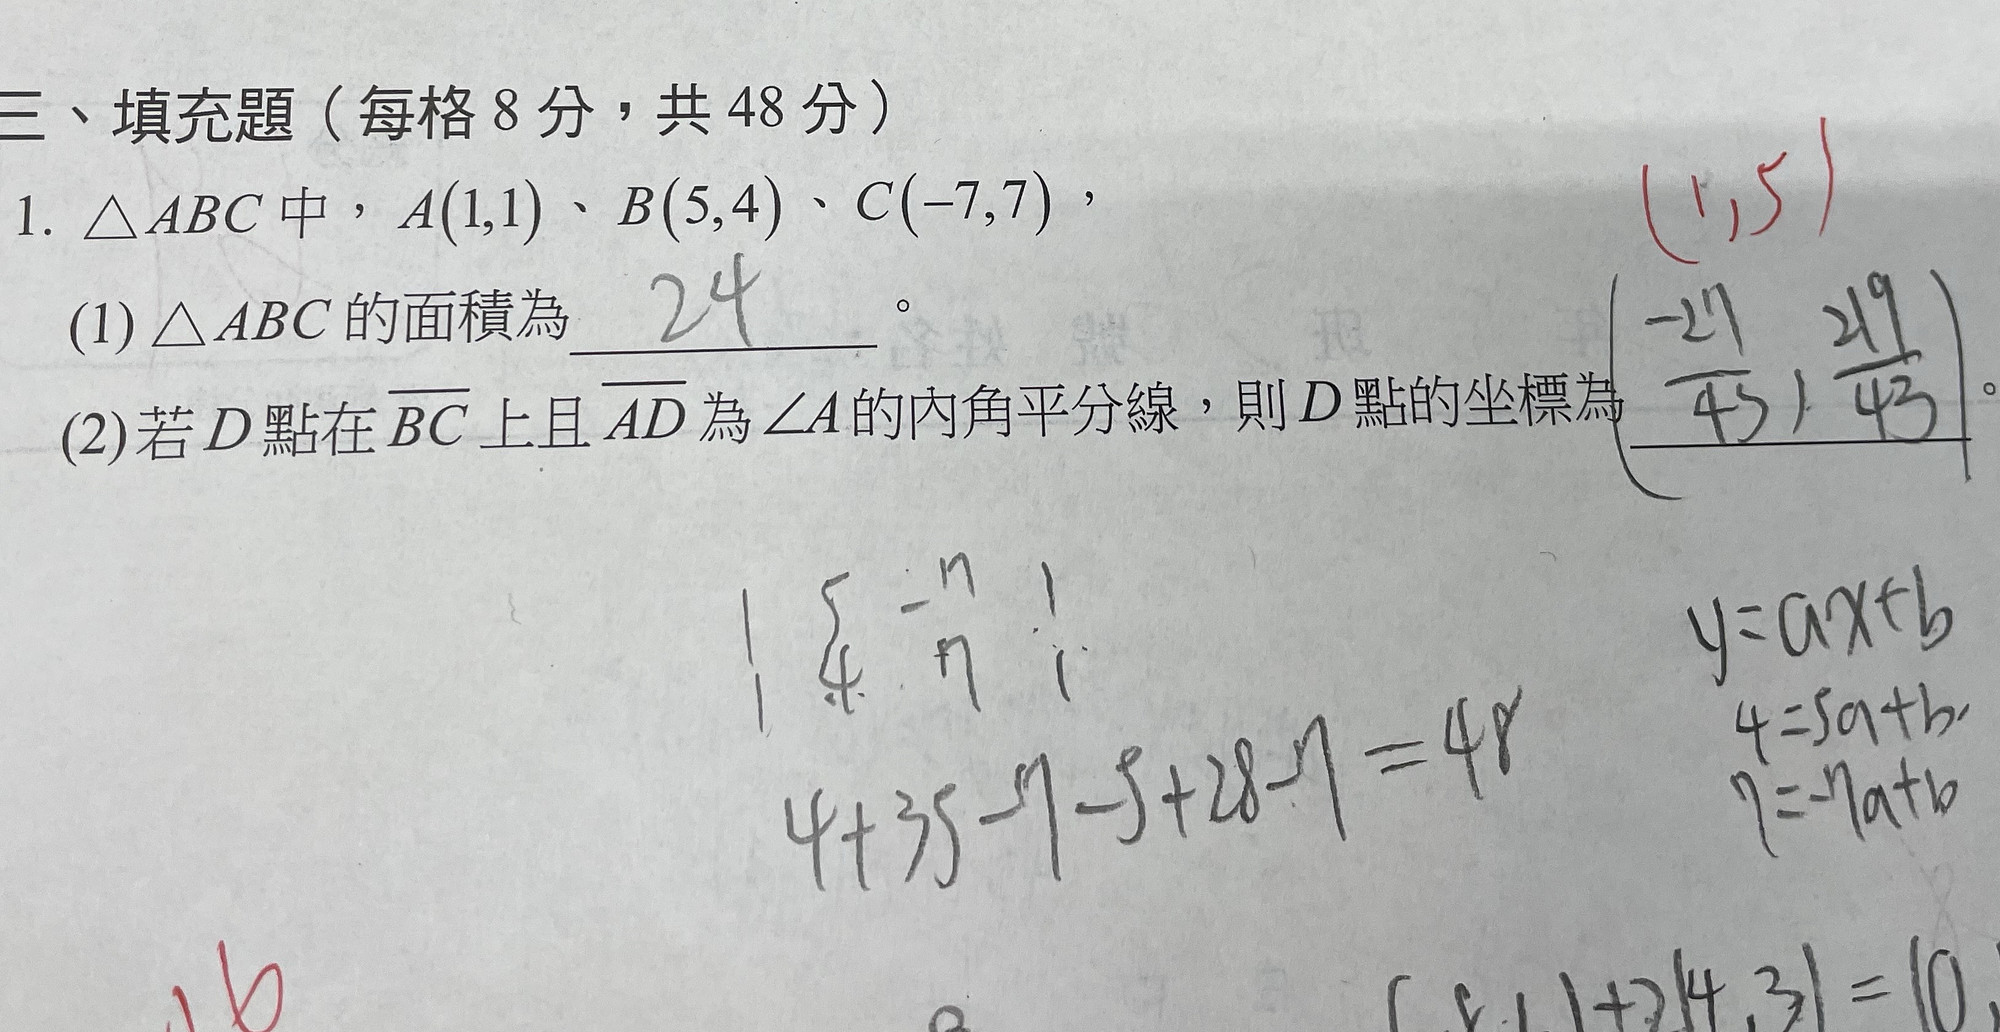 三、填充題(每格8分,共48分)
1. △ABC中,A(1,1)、B(5,4)、C(−7,7),
(1,5)
(1) △ABC的面積為 24 。
(2)若D點在BC上且AD為∠A的內角平分線,則D點的坐標為(-27/43, 219/43)。
1 5 -7 1
1 4 7 1
4+35-7-5+28-7=48
y=ax+b
4=5a+b
7=-7a+b